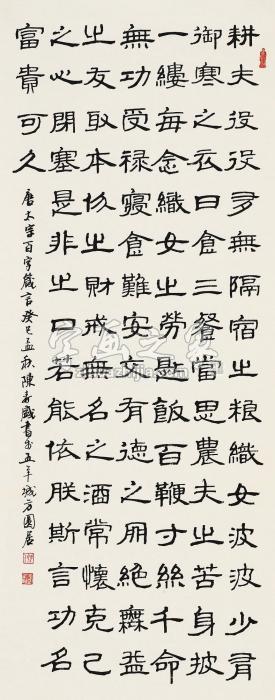 耕夫役役多無隔宿之粮織女波波少有
御寒之衣日食三餐當思農夫之苦身披
一縷每念織女之勞匙飯百鞭寸絲千命
無功受禄寢食難安交有德之朋絕無益
之友取本份之財戒無名之酒常懷克己
之心閉塞是非之口若能依朕斯言功名
富貴可久
唐太宗百字箴言癸巳孟秋陳書於五羊城方圓居